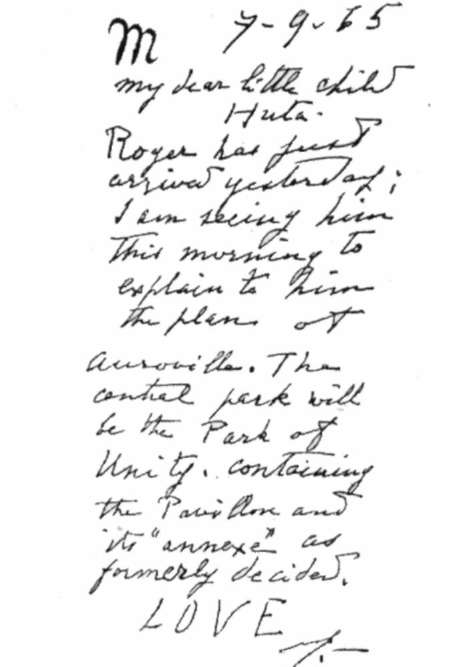 M 7-9-65
my dear little child
Huta.
Roger has just
arrived yesterday;
I am seeing him
this morning to
explain to him
the plan of
Auroville. The
central park will
be the Park of
Unity. containing
the Pavillon and
its "annexe" as
formerly decided.
LOVE